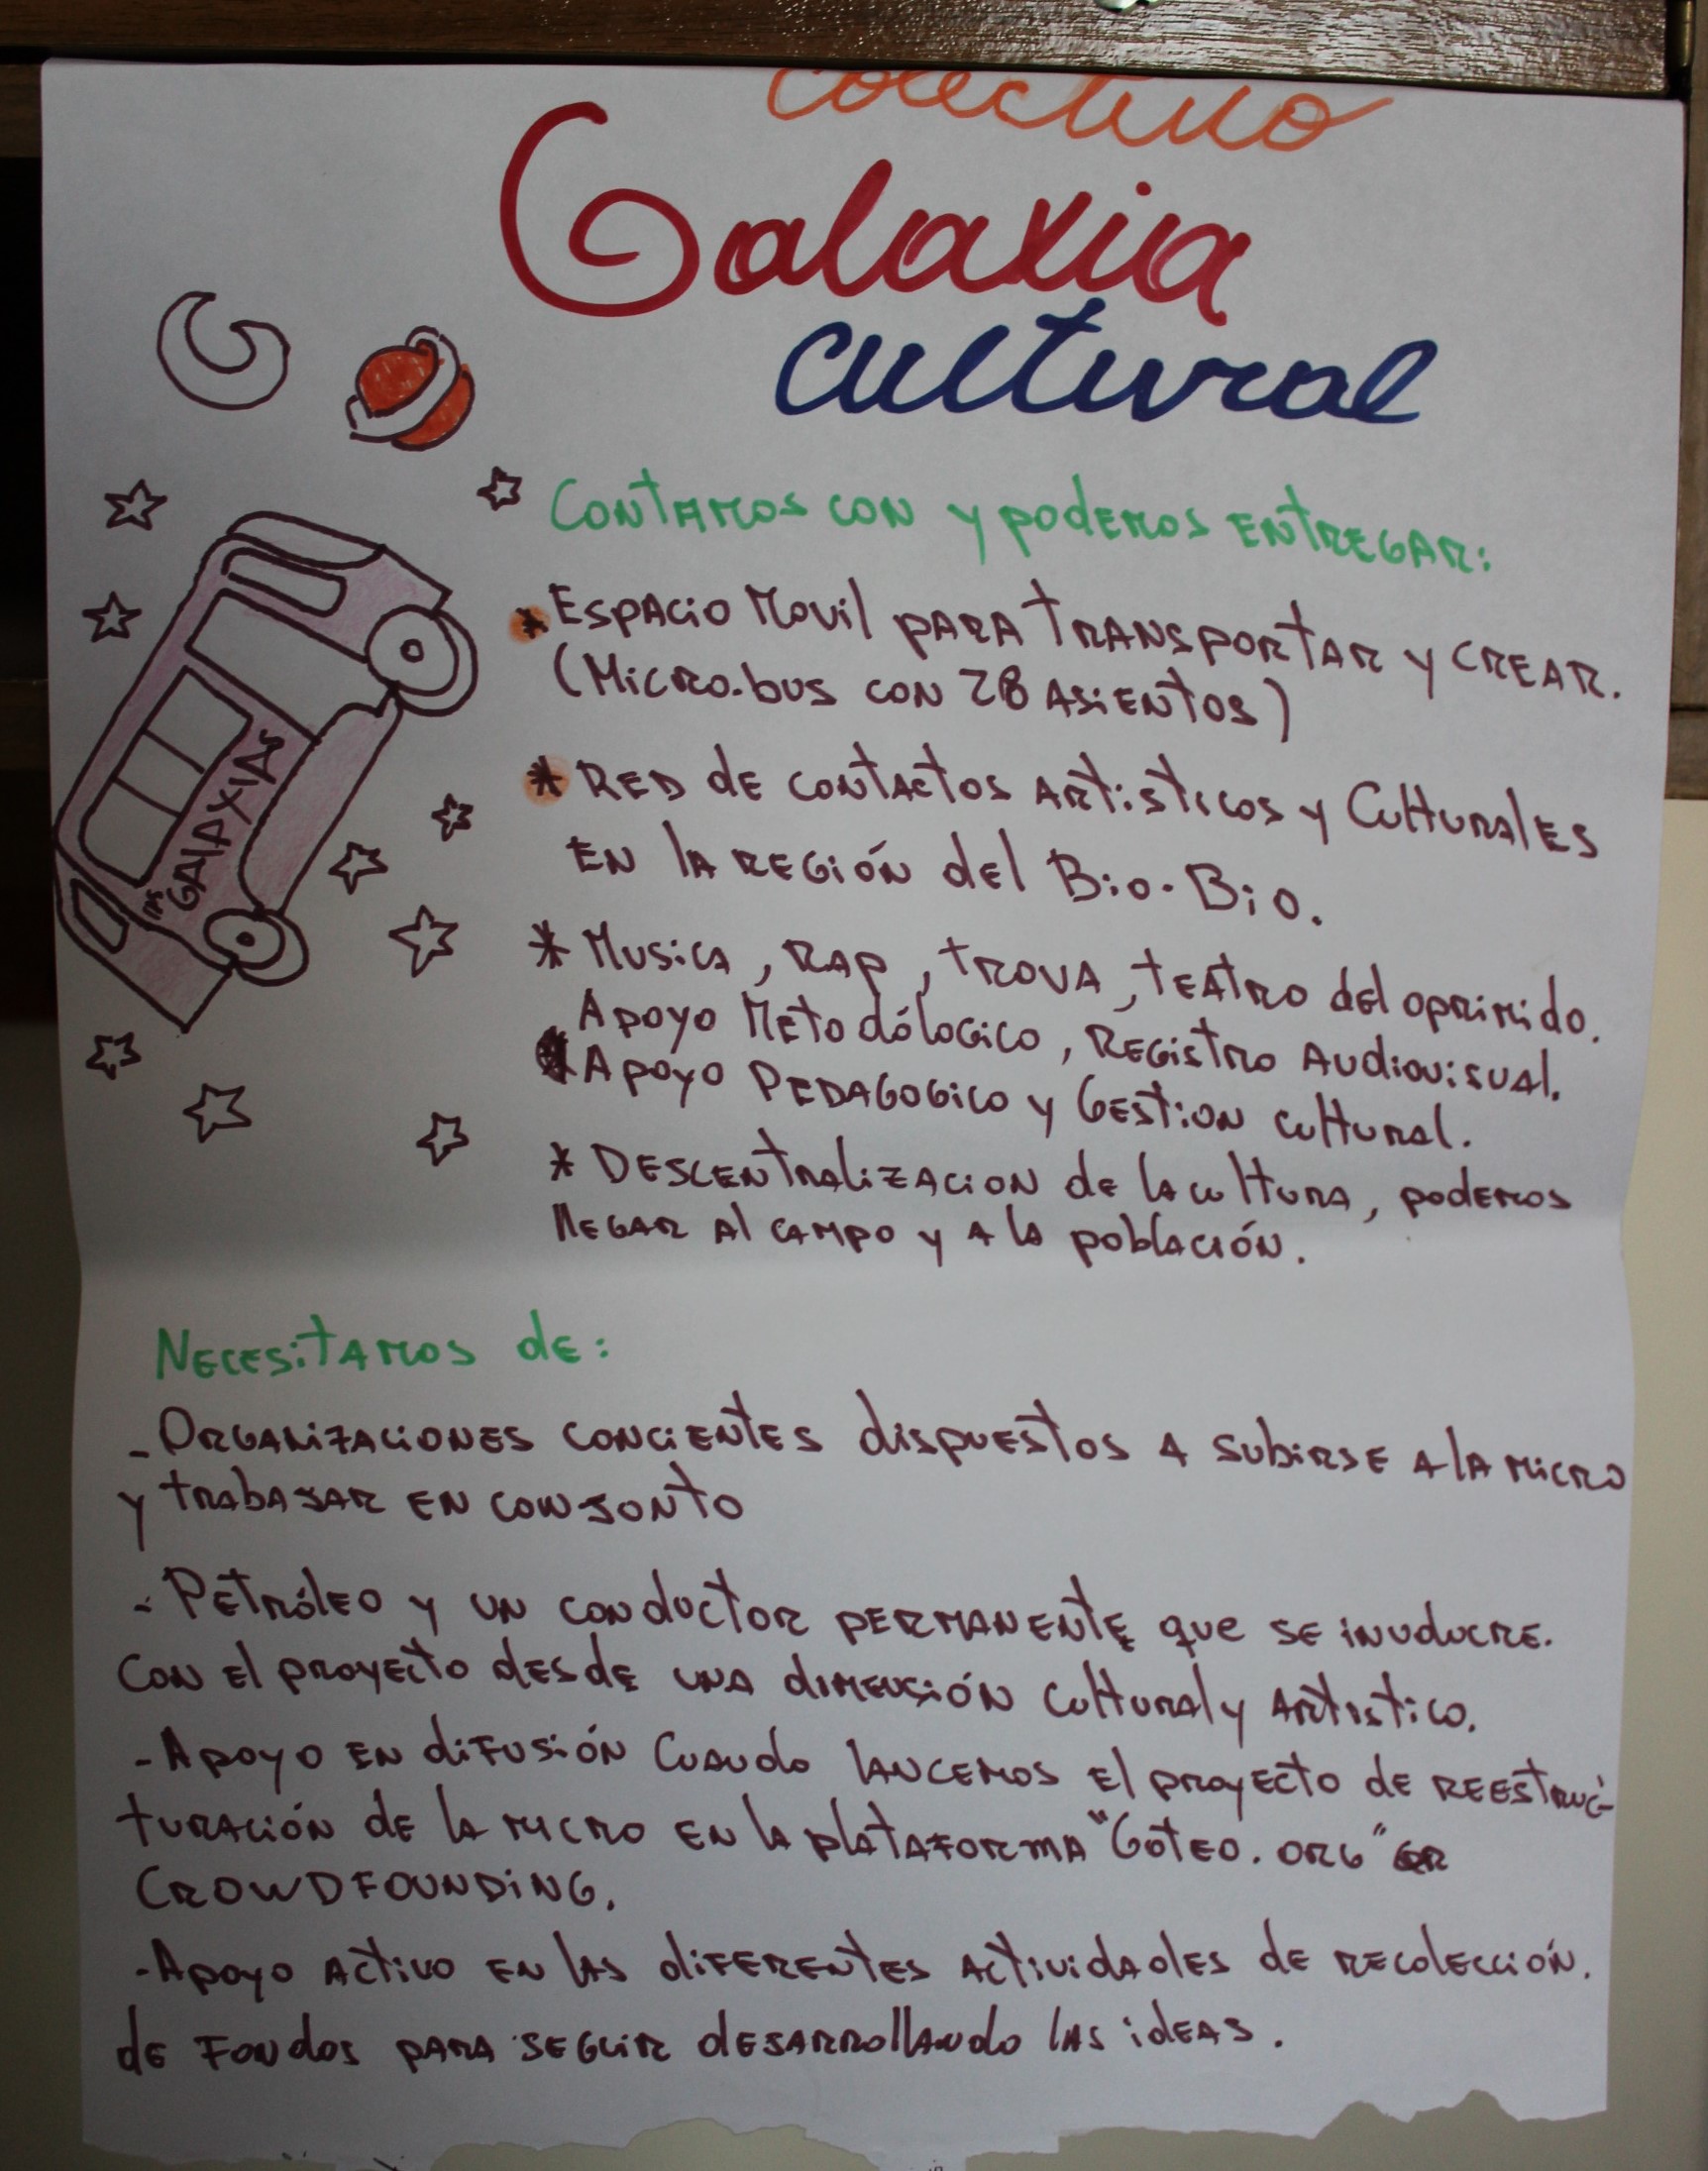 colectivo
Galaxia
cultural
Contamos con y podemos entregar:
* Espacio Movil para transportar y crear.
(Micro.bus con 28 asientos)
* Red de contactos artisticos y Culturales
en la región del Bio-Bio.
* Musica, Rap, trova, teatro del oprimido.
Apoyo Metodólogico, Registro Audiovisual.
* Apoyo Pedagogico y Gestion cultural.
* Descentralizacion de la cultura, podemos
llegar al campo y a la población.
LAS
GALAXIAS
Necesitamos de:
- Organizaciones concientes dispuestos a subirse a la micro
y trabajar en conjonto
- Petróleo y un conductor permanente que se invoducre.
Con el proyecto desde una dimensión cultural y artistico.
- Apoyo en difusión Cuando lancemos el proyecto de reestruc-
turación de la micro en la plataforma "Goteo.org"
crowdfounding.
- Apoyo activo en las diferentes actividades de recolección.
de fondos para seguir desarrollando las ideas.